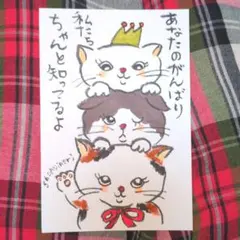 あなたのがんばり
私たち
ちゃんと知ってるよ